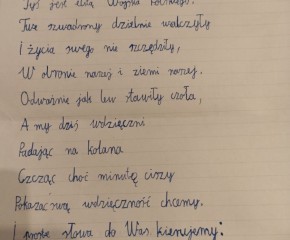 Tyś jest elitą Wojska Polskiego.
Twe szwadrony dzielnie walczyły
I życia swego nie szczędziły,
W obronie naszej i ziemi naszej.
Odważnie jak lew stawiły czoła,
A my dziś wdzięczni
Padając na kolana
Czcząc choć minutę ciszy
Pokazać swą wdzięczność chcemy.
I proste słowa do Was kierujemy: